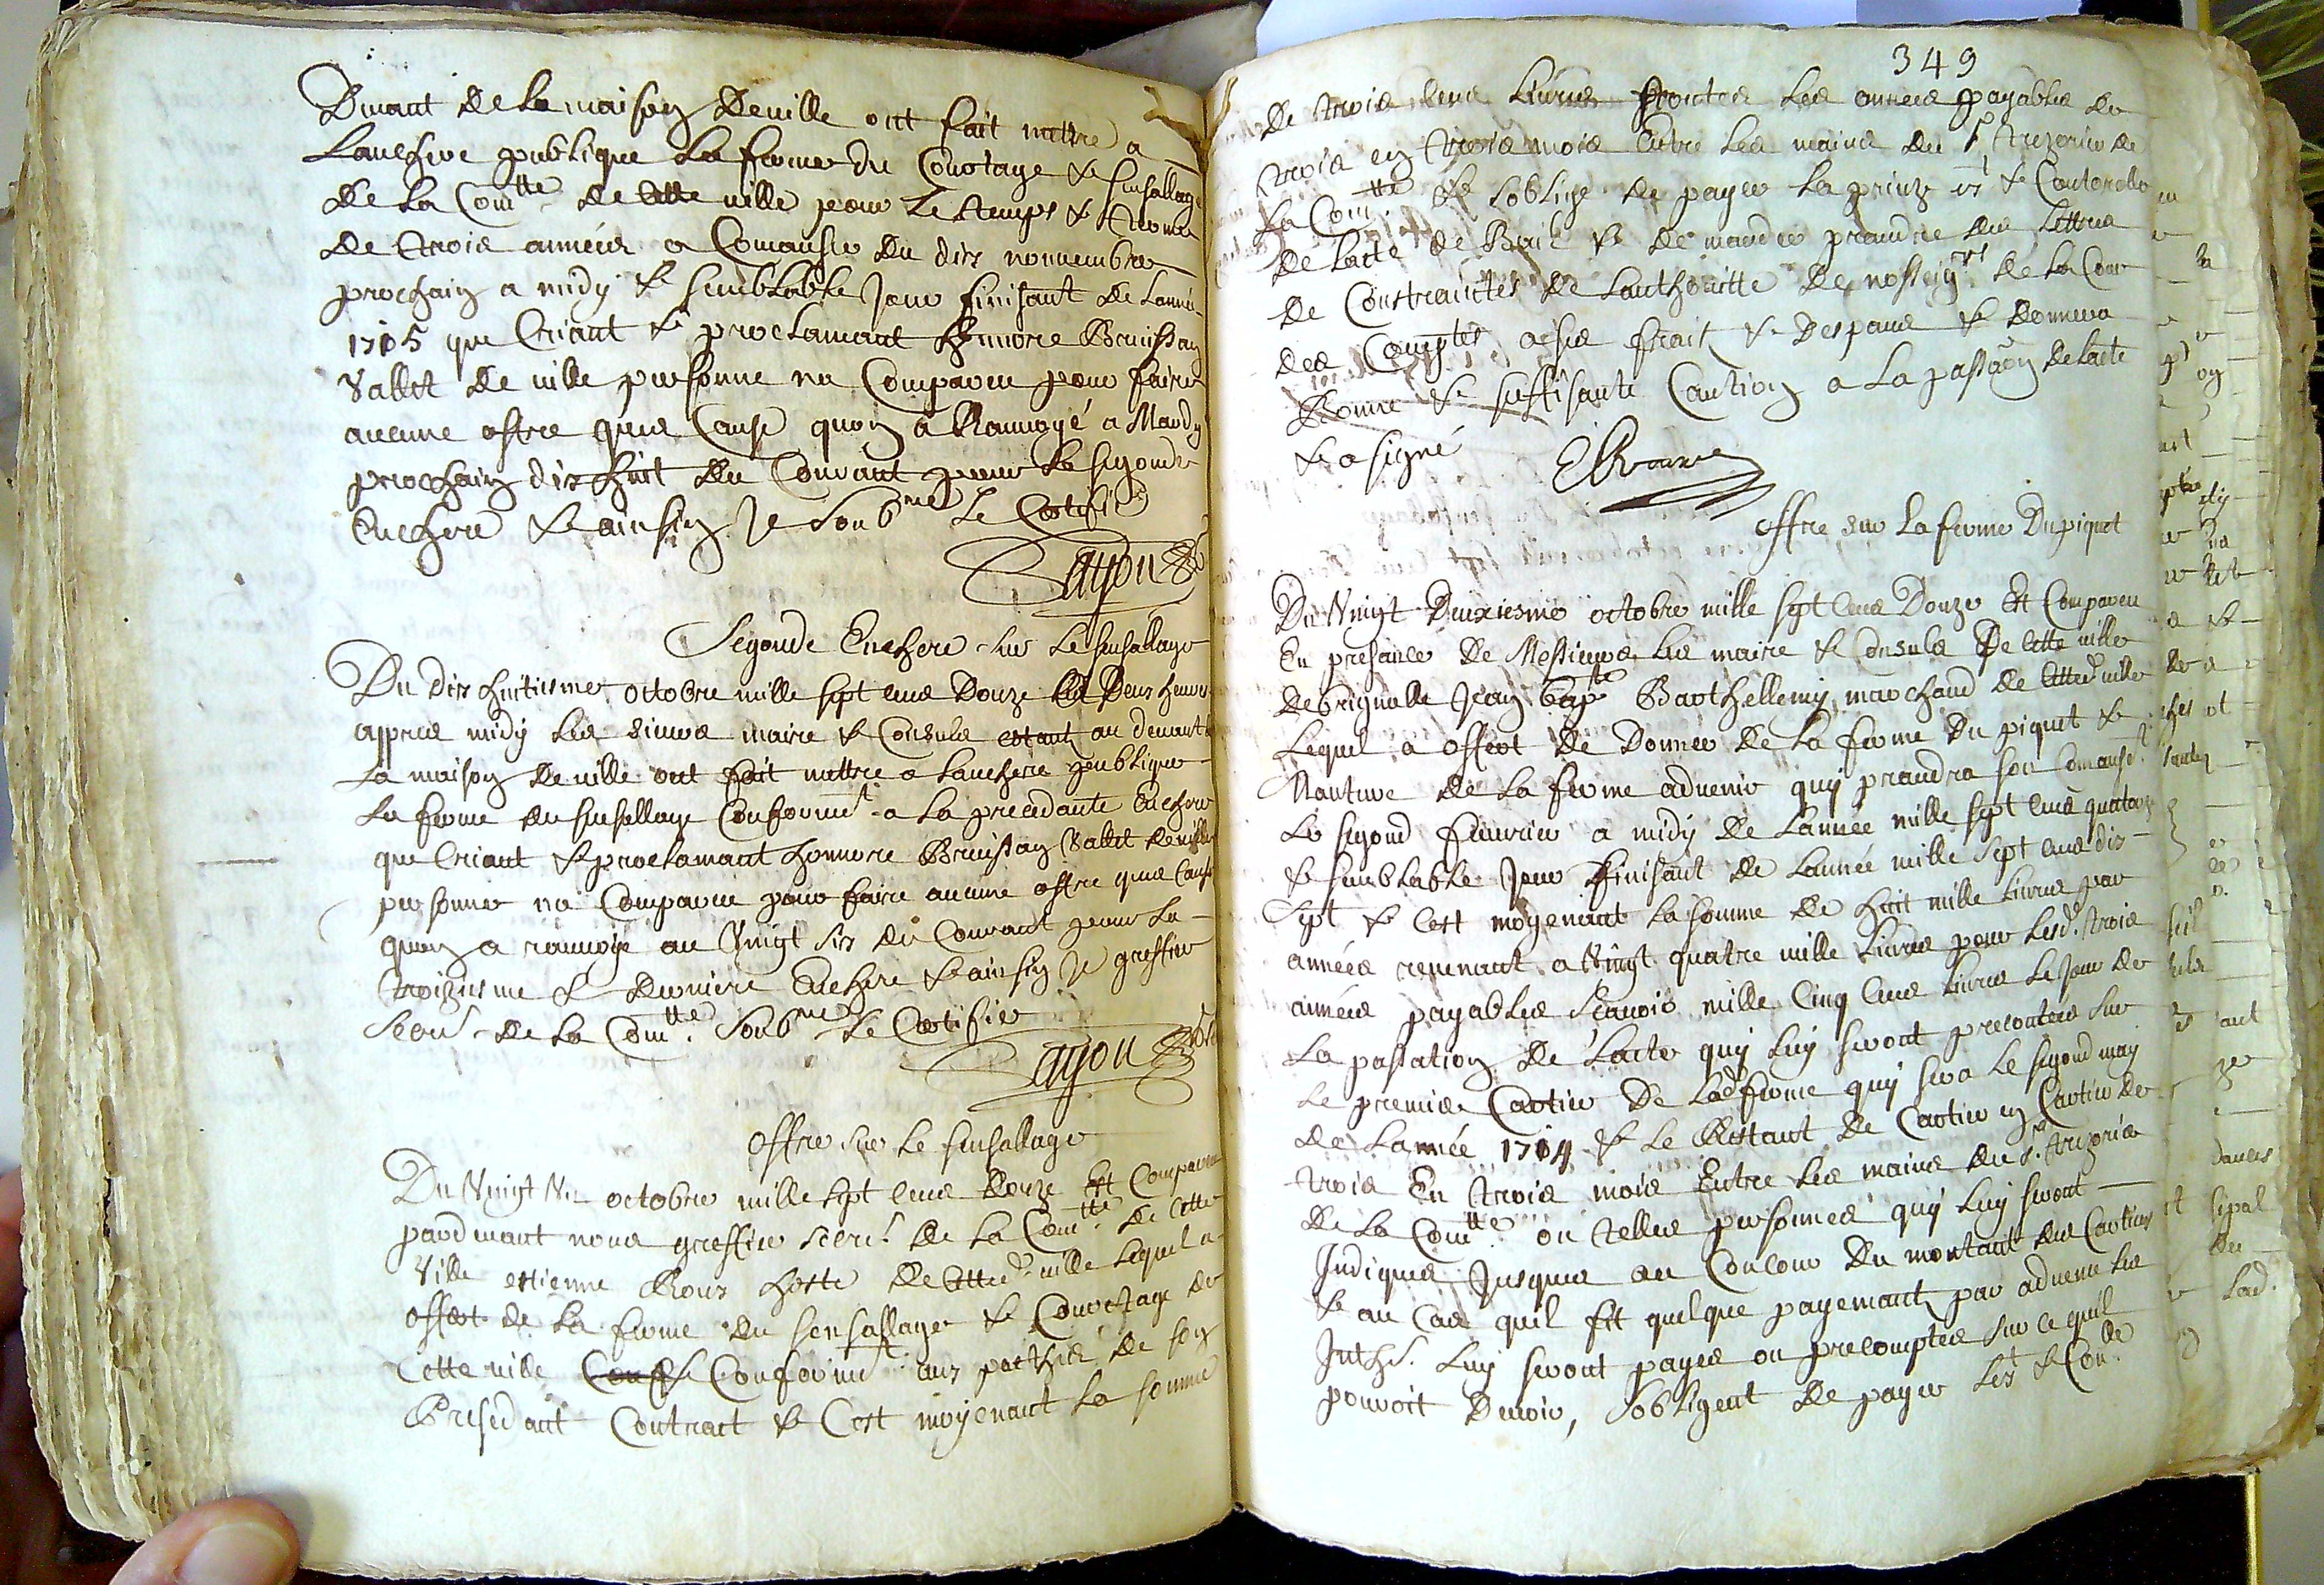 Devant de la maison de ville ont fait mettre a
Lanchere publique La ferme du Courtage & sensallage
de la Com^tte de cette ville pour Le temps & terme
de trois années a Comanser du dix novembre
prochain a midy & semblable Jour finisant de Lannée
1715 que Criant & proclamant Honnore Bruissan
Vallet de ville personne na Comparu pour faire
aucune offre qu'est Cause quon â Ranvoyé a Mardy
prochain dix huit du Courant pour la segonde
Enchere & ainsin Je Soub^né Le Certifie
Segonde Enchere sur Le sensallage
Du dix huitiesme octobre mille sept cens Douze Ed Deux heures
appres midy Les sieurs maire & Consuls estant au devant de
La maison de ville ont fait mettre a Lanchere publique
La ferme du sensallage Conforme^t a la precedante Enchere
que Criant & proclamant honnore Bruissan Vallet de ville
personne na Comparu pour faire aucune offre ques Cause
quon a ranvoyé au Vingt six du Courant pour La
troiziesme & derniere Enchere & ainsin Je greffier
Secre^t de la Com^tte. Soub^né Le Certifie
Offre sur Le sensallage
Du Vingt Un octobre mille sept cens Douze Est Comparu
pardevant nous greffier secre^t de la Com^tte de cette
Ville estienne Roux hoste de cette d^e ville Lequel a
offert de la ferme du sensallage & Courtage de
Cette ville Conforme^t aux pacthes de son
Presedant Contract & C'est moyenant La somme
349
de trois cens Livres toutes Les années payables de
trois en trois mois Entre Les mains du s^r trezorier de
La Com^tte & s'oblige de payer La prinze & Controlle
de Lacte de Bail & de mander prandre des Lettres
de Constraintes de Lauthoritte de nosseig^rs de La Cour
des Comptes a ses frais & Despans & donnera
Bonne & suffisante Caution a La passaôn de Lacte
& a signé
Offre sur La ferme Du piquet
Du Vingt Deuxiesme octobre mille sept cens Douze Est Comparu
En presance de Messieurs Les maire & Consuls De cette ville
de brignolle Jean bap^te Barthellemy marchand de cette d^e ville
Lequel a offert de Donner de La ferme Du piquet &
Mouture de La ferme advenir quy prandra son Comanse^t
Le segond feuvrier a midy de Lannée mille sept cens quatorze
& semblable Jour finisant de Lannée mille sept cens dix
Sept & C'est moyenant La somme de huit mille Livres par
années revenant a Vingt quatre mille Livres pour Lesd. trois
années payables Scavoir mille Cinq cens Livres Le Jour de
La passation de Lacte quy Luy seront precontées sur
Le premier Cartier de Lad^e ferme quy sera Le segond may
de Lannée 1714 & Le Restant de Cartier en Cartier de
trois En trois mois Entre Les mains du s^r. trezorier
de La Com^tte. ou telles personnes quy Luy seront
Indiques Jusques au Concour Du montant des Cartiers
& au Cas quil fit quelque payemant par advence Les
Inths. Luy seront payes ou precomptes sur ce quil
pouvoit Devoir, s'obligent de payer Les